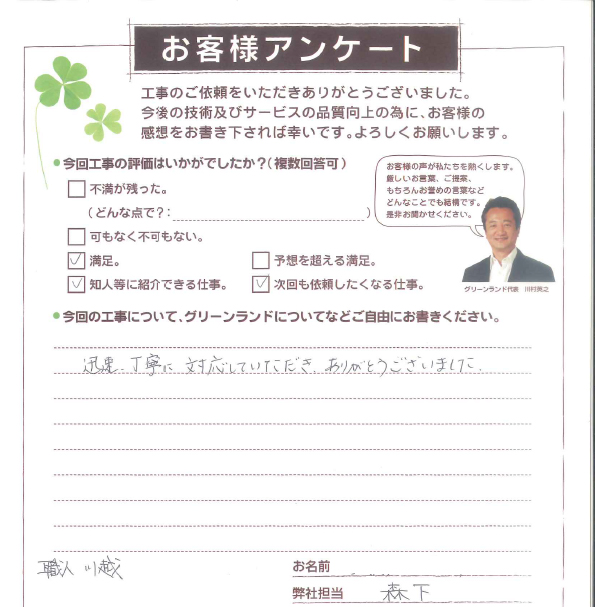 お客様アンケート
工事のご依頼をいただきありがとうございました。
今後の技術及びサービスの品質向上の為に、お客様の
感想をお書き下されば幸いです。よろしくお願いします。
●今回工事の評価はいかがでしたか？（複数回答可）
お客様の声が私たちを熱くします。
厳しいお言葉、ご提案、
もちろんお誉めの言葉など
どんなことでも結構です。
是非お聞かせください。
不満が残った。
（どんな点で？：　）
可もなく不可もない。
満足。
予想を超える満足。
知人等に紹介できる仕事。
次回も依頼したくなる仕事。
グリーンランド代表　川村英之
●今回の工事について、グリーンランドについてなどご自由にお書きください。
迅速、丁寧に 対応していただき、ありがとうございました。
職人 川越
お名前
弊社担当　森下